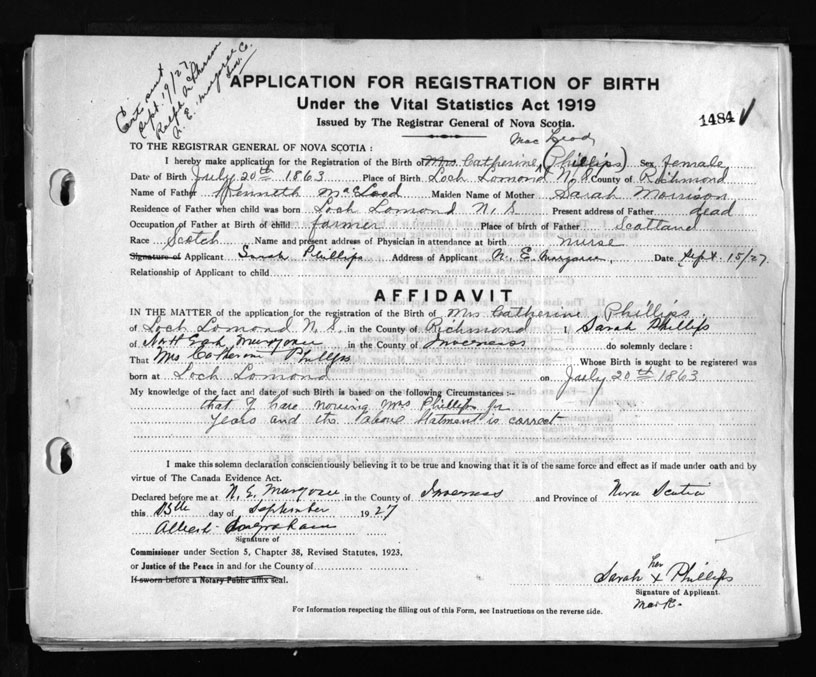 Cert. sent
Sept. 19/27
Ralph
N. E. Margaree
Inv. Co.
APPLICATION FOR REGISTRATION OF BIRTH
Under the Vital Statistics Act 1919
Issued by The Registrar General of Nova Scotia.
1484
Mac Leod
TO THE REGISTRAR GENERAL OF NOVA SCOTIA :
I hereby make application for the Registration of the Birth of Mrs Catherine (Phillips) Sex female
Date of Birth July 20th 1863 Place of Birth Loch Lomond N.S. County of Richmond
Name of Father Kenneth McLeod Maiden Name of Mother Sarah Morrison
Residence of Father when child was born Loch Lomond N.S. Present address of Father dead
Occupation of Father at Birth of child farmer Place of birth of Father Scotland
Race Scotch Name and present address of Physician in attendance at birth nurse
Signature of Applicant Sarah Phillips Address of Applicant N. E. Margaree, Date Sept. 15/27.
Relationship of Applicant to child
AFFIDAVIT
IN THE MATTER of the application for the registration of the Birth of Mrs Catherine Phillips
of Loch Lomond N.S. in the County of Richmond I, Sarah Phillips
of North East Margaree in the County of Inverness do solemnly declare :
That Mrs Catherine Phillips Whose Birth is sought to be registered was
born at Loch Lomond on July 20th 1863
My knowledge of the fact and date of such Birth is based on the following Circumstances :-
that I have Mrs Phillips for
years and the above statment is correct
I make this solemn declaration conscientiously believing it to be true and knowing that it is of the same force and effect as if made under oath and by
virtue of The Canada Evidence Act.
Declared before me at N. E. Margaree in the County of Inverness and Province of Nova Scotia
this 15th day of September 1927
Albert Ingraham
Signature of
Commissioner under Section 5, Chapter 38, Revised Statutes, 1923.
or Justice of the Peace in and for the County of
If sworn before a Notary Public affix seal.
her
Sarah x Phillips
Signature of Applicant.
mark.
For Information respecting the filling out of this Form, see Instructions on the reverse side.